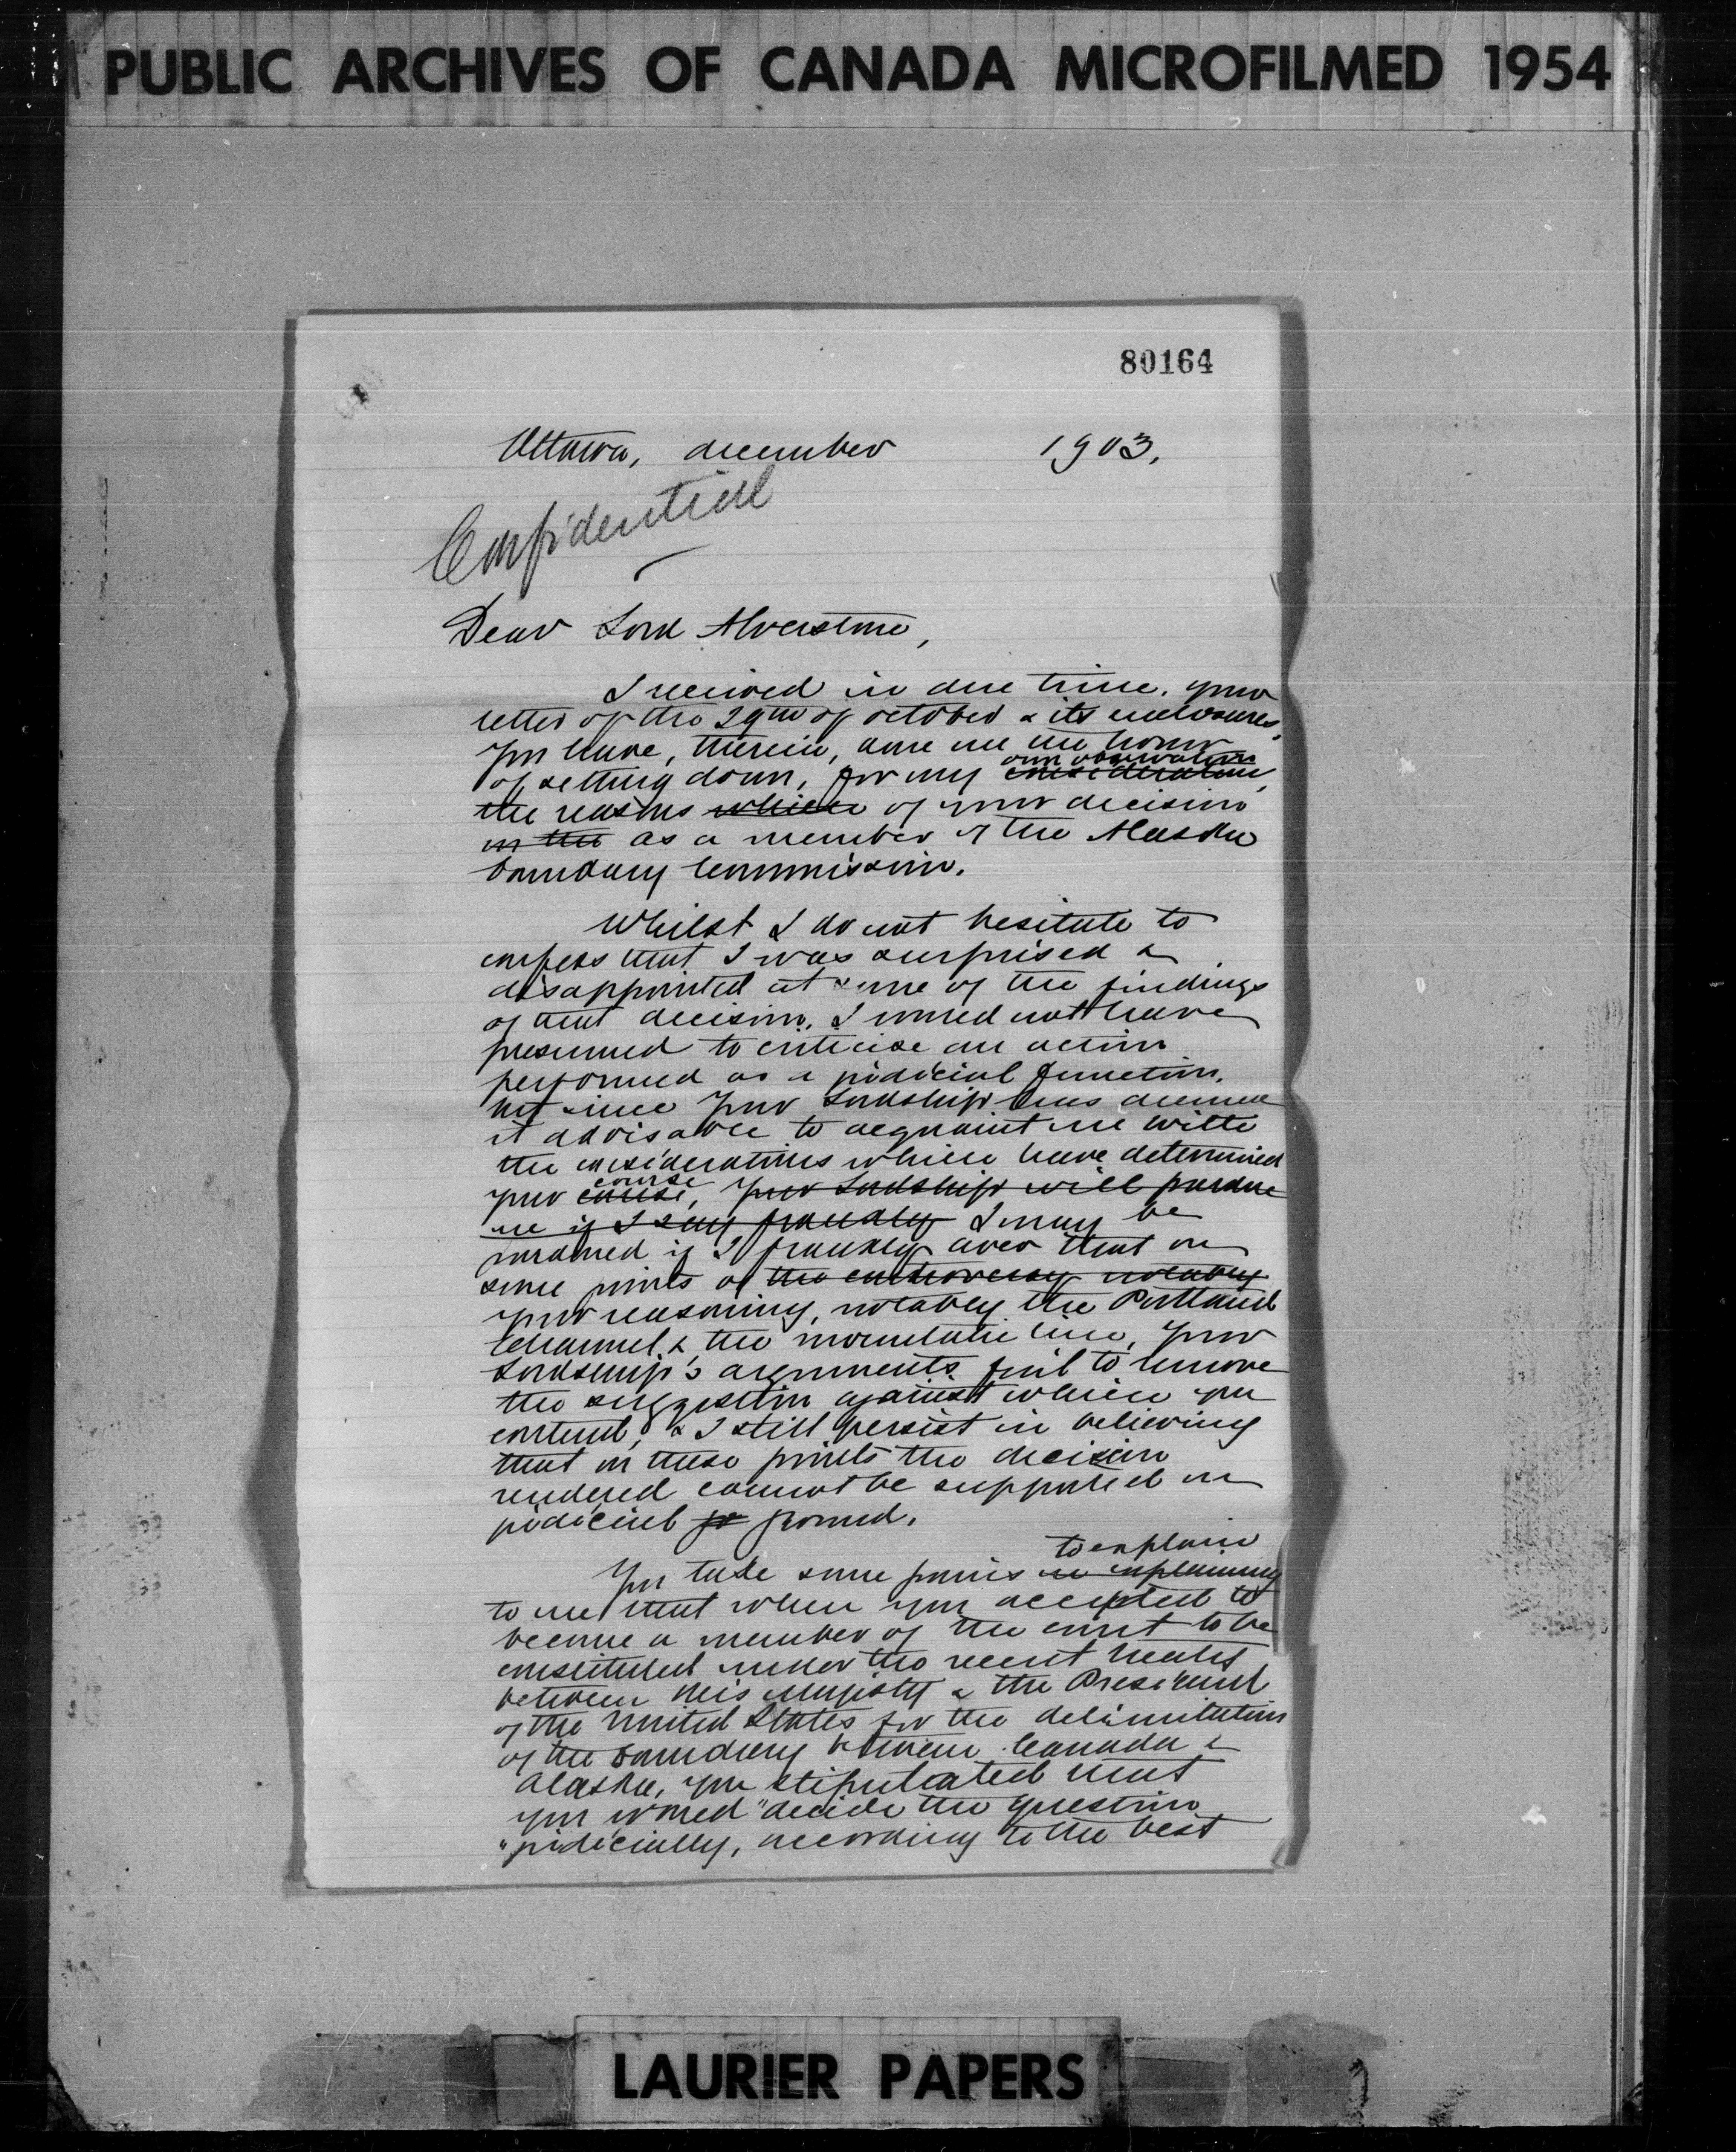 PUBLIC ARCHIVES OF CANADA MICROFILMED 1954
80164
Ottawa, december 1903.
Confidential
Dear Lord Alverstone,
I received in due time, your
letter of the 29th of october & its enclosures.
You have, therein, done me the honor
own observation
of setting down, for my consideration,
the reasons which of your decision
in the as a member of the Alaska
boundary Commission.
Whilst I do not hesitate to
confess that I was surprised &
disappointed at some of the findings
of that decision, I would not have
presumed to criticise an action
performed as a judicial function,
but since Your Lordship has deemed
it advisable to acquaint me with
the considerations which have determined
course
your cause, Your Lordship will pardon
me if I say frankly I may be
pardoned if I frankly aver that on
some points of the controversy notably
your reasoning, notably the Portland
Channel & the mountain line, Your
Lordship's arguments fail to remove
the suggestion against which you
contend, & I still persist in believing
that on these points the decision
rendered cannot be supported on
judicial gr ground.
to explain
You take some pains in explaining
to me that when you accepted to
become a member of the court to be
constituted under the recent treaty
between His Majesty & the President
of the United States for the delimitation
of the boundary between Canada &
Alaska, you stipulated that
you would "decide the question
"judicially, according to the best
LAURIER PAPERS